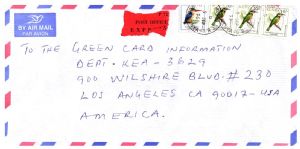 BY AIR MAIL
PAR AVION
POST OFFICE
TO THE GREEN CARD INFORMATION
DEPT. KEA - 3629
900 WILSHIRE BLVD. # 230
LOS ANGELES CA 90017-USA
AMERICA.